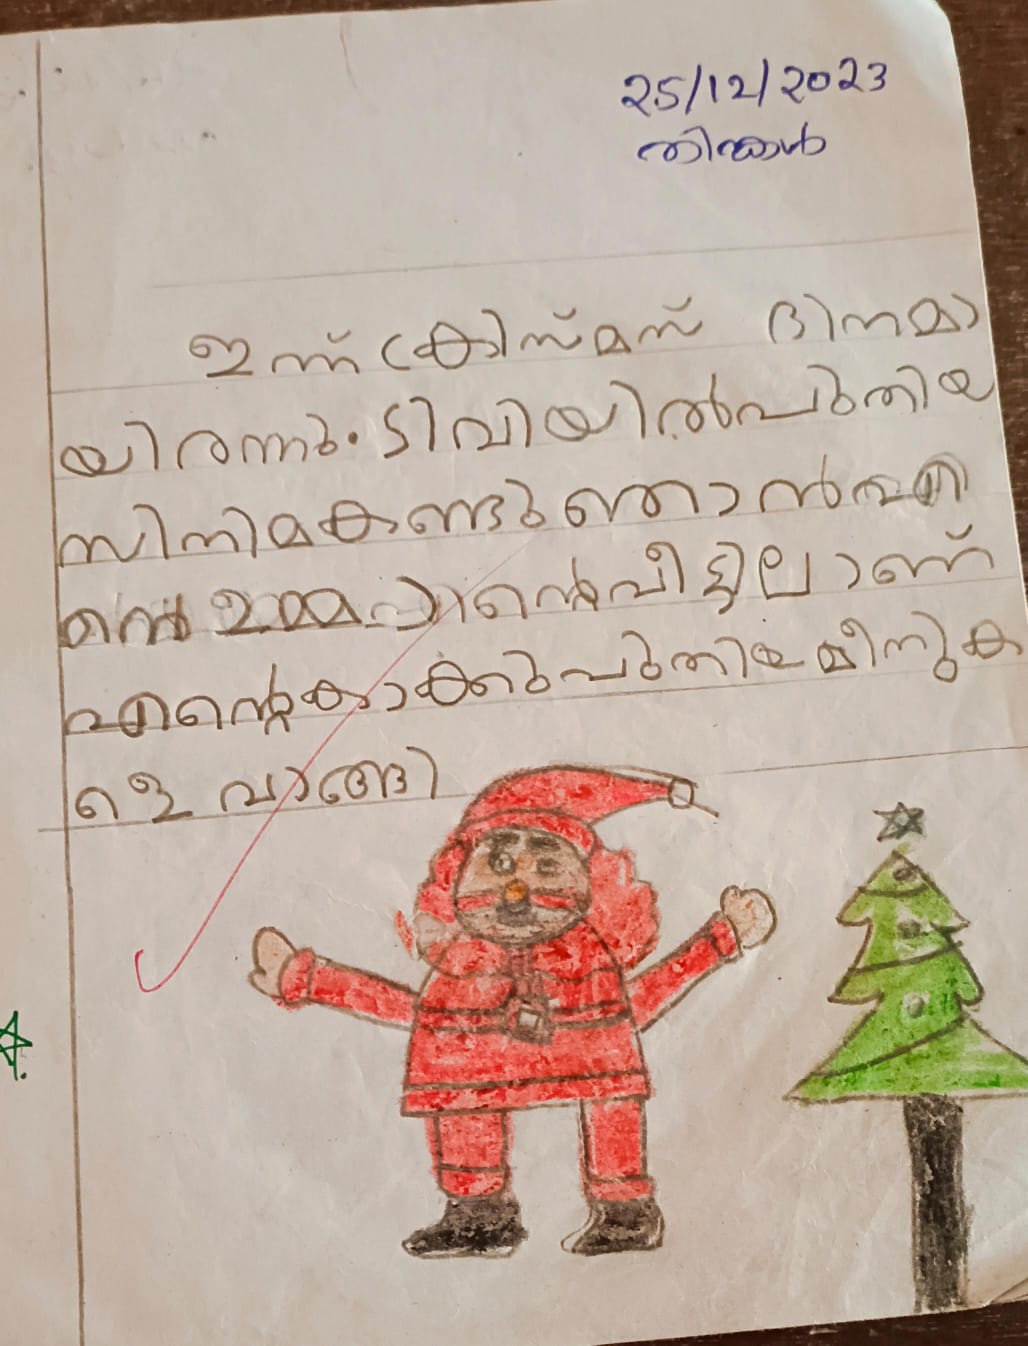 25/12/2023
തിങ്കൾ
ഇന്ന് ക്രിസ്മസ് ദിനമാ
യിരന്നു. ടിവിയിൽ പുതിയ
സിനിമ കണ്ടു ഞാൻ എ
ന്റെ ഉമ്മ വീട്ടിലാണ്
എന്റെ കാക്കു പുതിയ മീനുക
ളെ വാങ്ങി